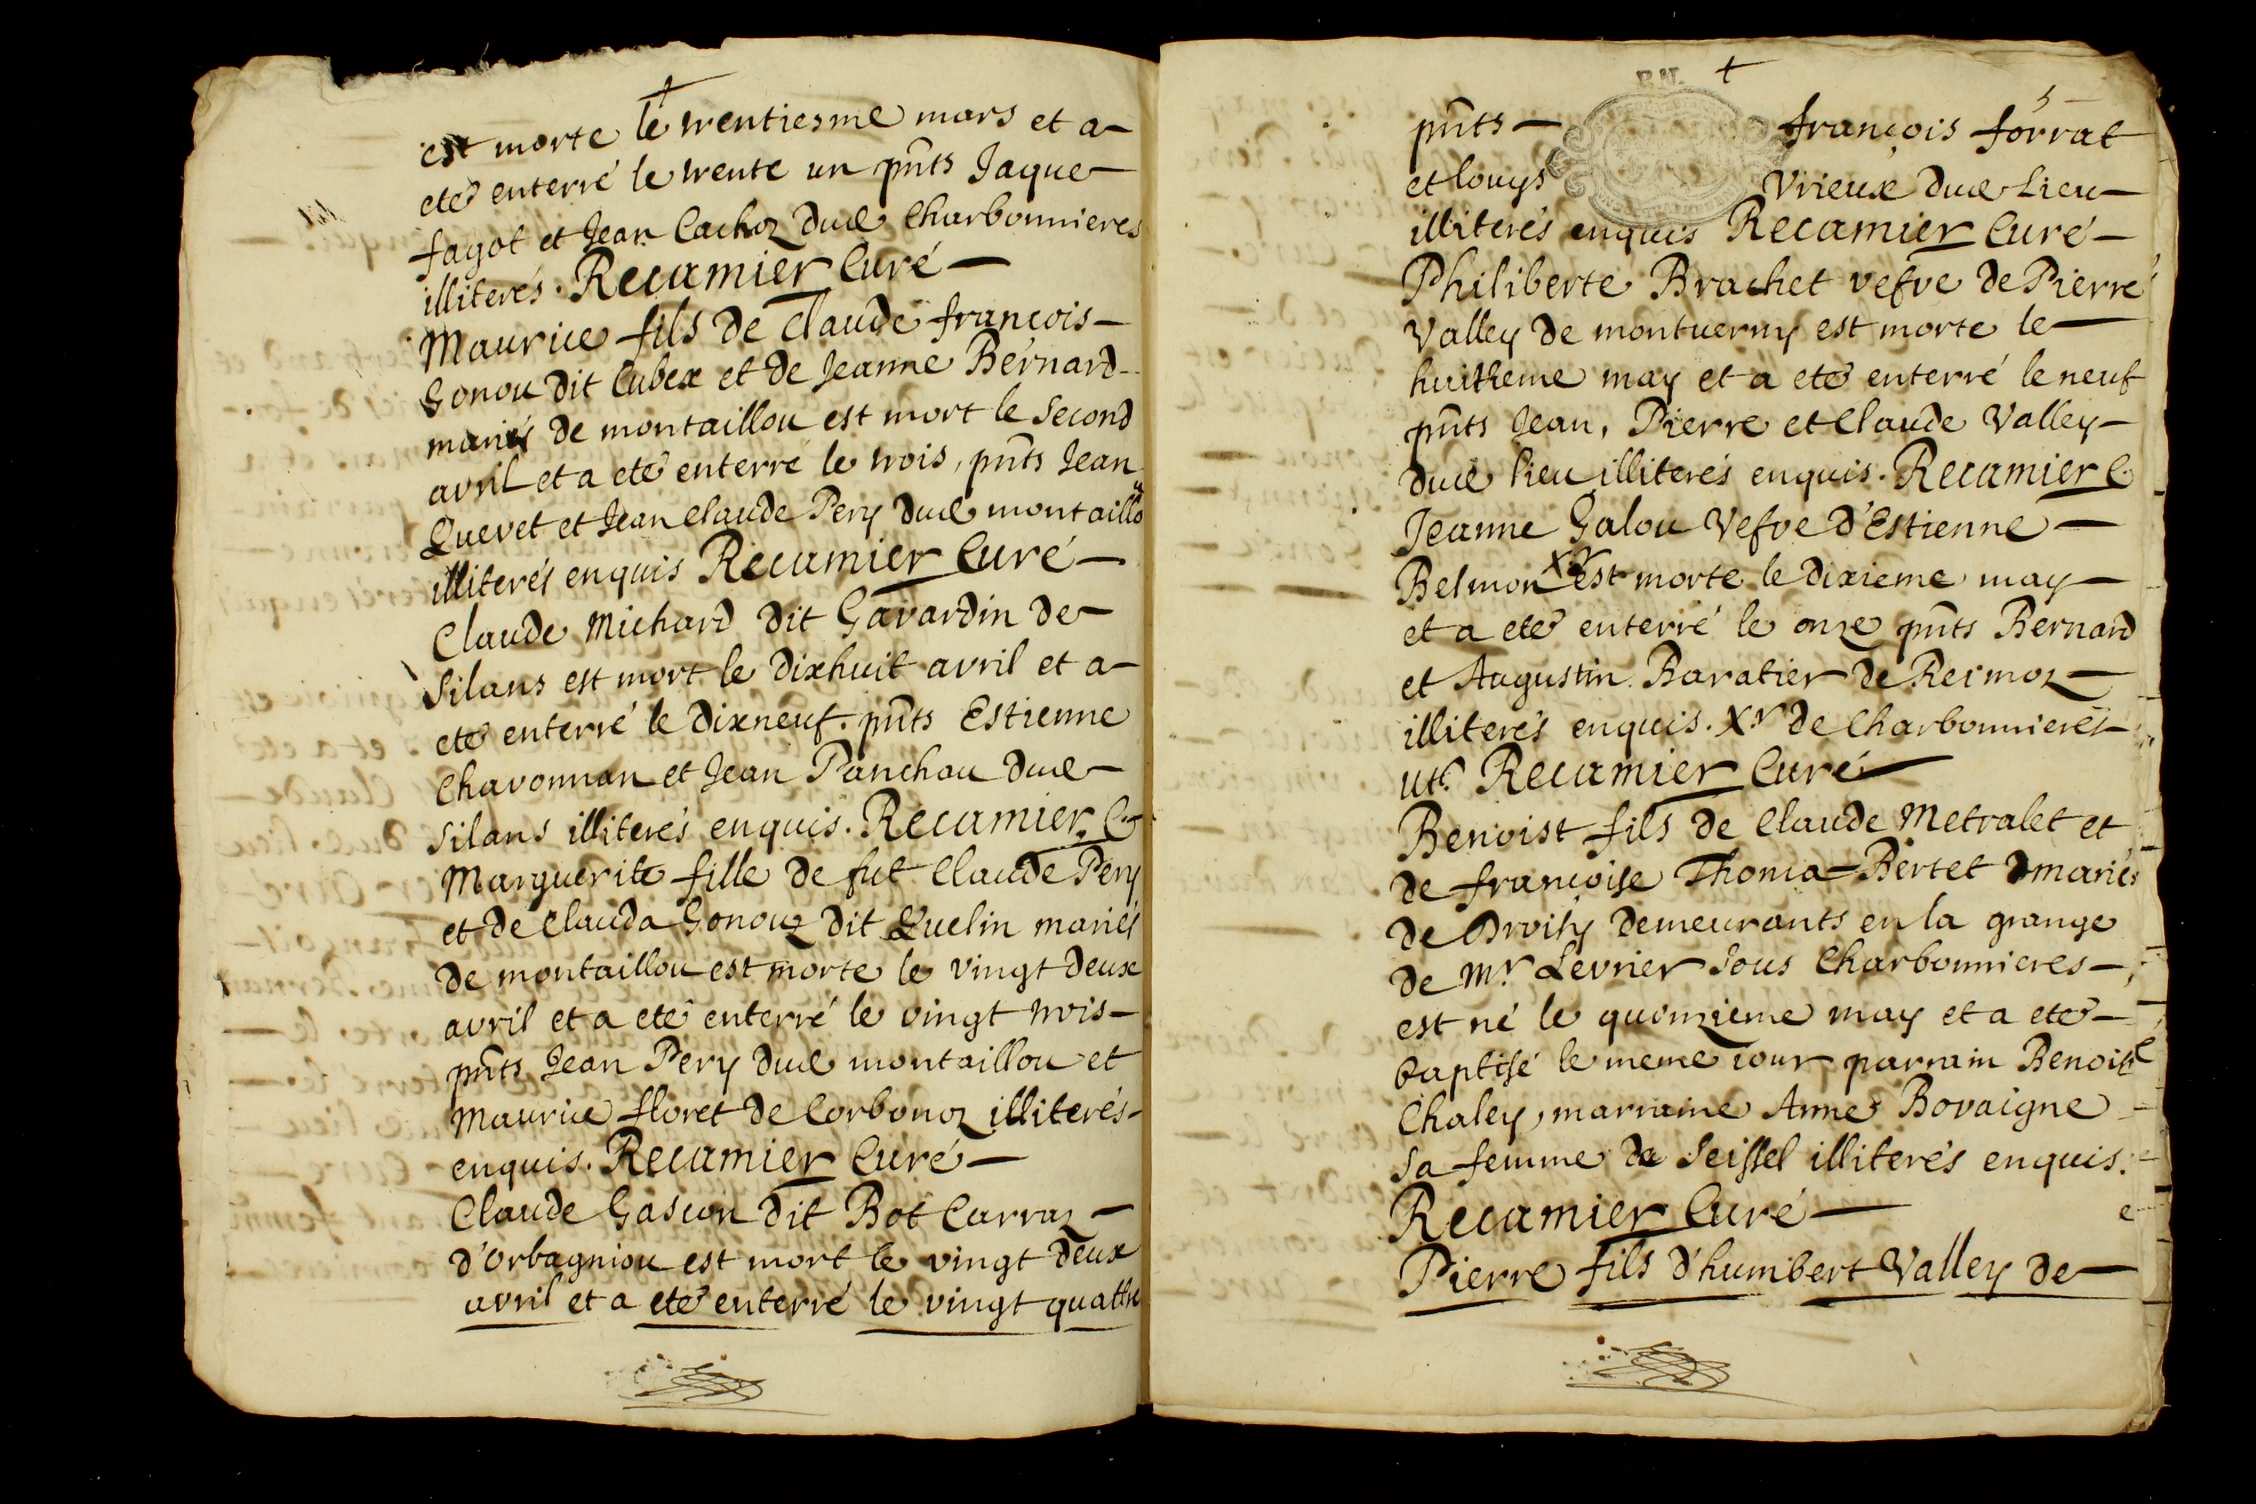 est morte le trentiesme mars et a
eté enterré le trente un pnts Jaque
fagot et Jean Cachoz dud Charbonnieres
illiterés. Recamier Curé
Maurice fils de Claude françois
Gonou dit Cubex et de Jeanne Bernard
mariés de montaillou est mort le Second
avril et a eté enterré le trois, pnts Jean
Quevet et Jean Claude Pery dud montaillou
illiterés enquis Recamier Curé
Claude Michard dit Gavardin de
Silans est mort le dixhuit avril et a
eté enterré le dixneuf. pnts Estienne
Chavonnan et Jean Panchau dud
Silans illiterés enquis. Recamier C
Marguerite fille de fut Claude Pery
et de Clauda Gonouz dit Quelin mariés
de montaillou est morte le vingt deux
avril et a eté enterré le vingt trois
pnts Jean Pery dud montaillou et
Maurice floret de Corbonoz illiterés
enquis. Recamier Curé
Claude Gascon dit Bot Carraz
d'Orbagniou est mort le vingt deux
avril et a eté enterré le vingt quattre
5
pnts françois forrat
et louys Vrieux dud Lieu
illiterés enquis Recamier Curé
Philiberte Brachet vefve de Pierre
Valley de montverny est morte le
huitieme may et a eté enterré le neuf
pnts Jean, Pierre et Claude Valley
dud lieu illiterés enquis. Recamier C
Jeanne Galou Vefve d'Estienne
Belmon Xr est morte le dixieme may
et a eté enterré le onze pnts Bernard
et Augustin Baratier de Reimoz
illiterés enquis. Xr de Charbonnieres
ut. Recamier Curé
Benoist fils de Claude Metralet et
de françoise Thoma=Bertet mariés
de Droisy demeurants en la grange
de Mr. Levrier Sous Charbonnieres
est né le quinzieme may et a eté
baptisé le meme iour parrain Benoist
Chaley, marraine Anne Bovaigne
Sa femme de Seissel illiterés enquis.
Recamier Curé
Pierre fils d'humbert Valley de